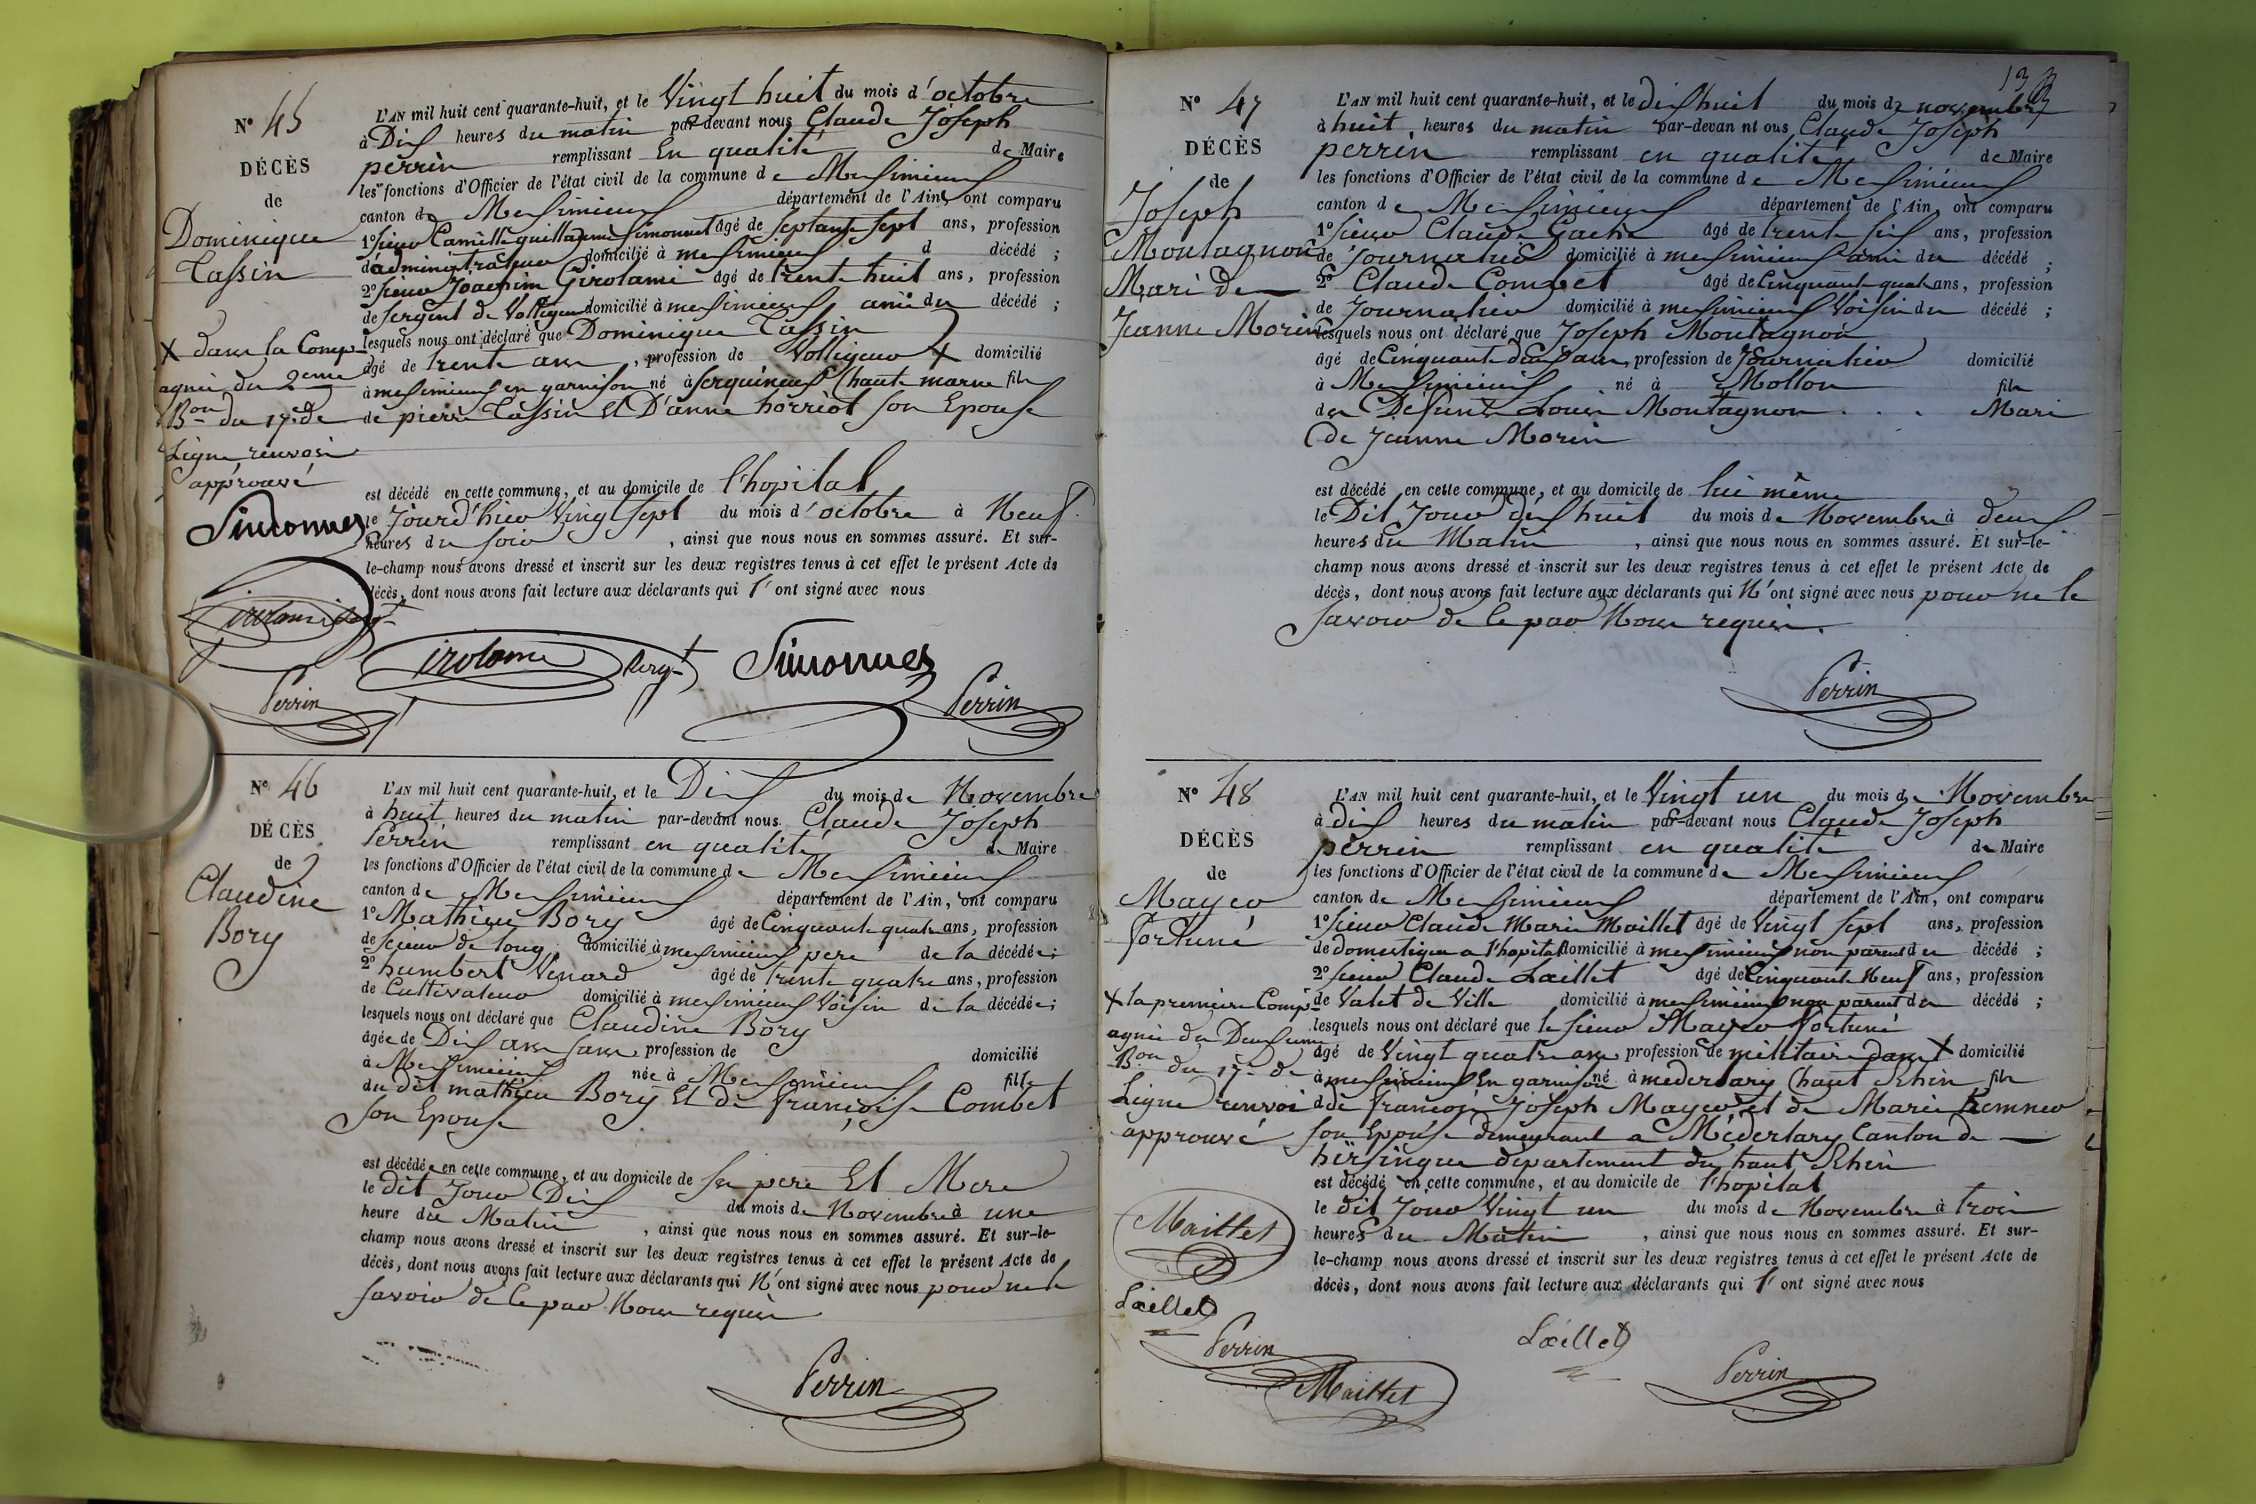 N° 45
DÉCÈS
de
Dominique
Tassin
X dans la Comp-
agnie du 2eme
Bon du 17e de
Ligne renvoi
approuvé
Simonnet
Girolami Sergt
Perrin
L'AN mil huit cent quarante-huit, et le Vingt huit du mois d'octobre
à Dix heures du matin par-devant nous Claude Joseph
perrin remplissant En qualité de Maire
les fonctions d'Officier de l'état civil de la commune de Meximieux
canton de Meximieux département de l'Ain, ont comparu
1° sieur Camille guillaume Simonnet âgé de Septante sept ans, profession
d'administrateur domicilié à meximieux d décédé ;
2° sieur Joachim Girolami âgé de trente huit ans, profession
de sergent de Voltigeur domicilié à meximieux ami du décédé ;
lesquels nous ont déclaré que Dominique Tassin
âgé de trente ans, profession de Voltigeur X domicilié
à meximieux en garnison né à serquineux (haute marne fils
de pierre Tassin Et D'anne horriot son Epouse
est décédé en cette commune, et au domicile de l'hopital
le Jourd'hier Vingt sept du mois d'octobre à Neuf
heures du soir, ainsi que nous nous en sommes assuré. Et sur-
le-champ nous avons dressé et inscrit sur les deux registres tenus à cet effet le présent Acte de
décès, dont nous avons fait lecture aux déclarants qui l'ont signé avec nous
Girolami Sergt Simonnet
Perrin
N° 46
DÉCÈS
de
Claudine
Bory
L'AN mil huit cent quarante-huit, et le Dix du mois de Novembre
à huit heures du matin par-devant nous Claude Joseph
Perrin remplissant en qualité de Maire
les fonctions d'Officier de l'état civil de la commune de Meximieux
canton de Meximieux département de l'Ain, ont comparu
1° Mathieu Bory âgé de Cinquante quatre ans, profession
de scieur de long domicilié à meximieux pere de la décédée ;
2° humbert Venard âgé de trente quatre ans, profession
de Cultivateur domicilié à meximieux Voisin de la décédée ;
lesquels nous ont déclaré que Claudine Bory
âgée de Dix ans sans profession de domicilié
à Meximieux née à Meximieux fille
du dit mathieu Bory Et de françoise Combet
son Epouse
est décédée en cette commune, et au domicile de ses pere Et Mere
le dit Jour Dix du mois de Novembre à une
heure du Matin, ainsi que nous nous en sommes assuré. Et sur-le-
champ nous avons dressé et inscrit sur les deux registres tenus à cet effet le présent Acte de
décès, dont nous avons fait lecture aux déclarants qui N'ont signé avec nous pour ne le
savoir de ce par Nous requis
Perrin
N° 47
DÉCÈS
de
Joseph
Montagnon
Mari de
Jeanne Morin
L'AN mil huit cent quarante-huit, et le dix huit du mois de novembre
à huit heures du matin par-devan nt ous Claude Joseph
perrin remplissant en qualité de Maire
les fonctions d'Officier de l'état civil de la commune de Meximieux
canton de Meximieux département de l'Ain, ont comparu
1° sieur Claude Gache âgé de trente six ans, profession
de Journalier domicilié à meximieux ami du décédé ;
2° Claude Combet âgé de Cinquante quatre ans, profession
de Journalier domicilié à meximieux Voisin du décédé ;
lesquels nous ont déclaré que Joseph Montagnon
âgé de Cinquante deux ans, profession de Journalier domicilié
à Meximieux né à Mollon fils
de Défunt Louis Montagnon . . . Mari
de Jeanne Morin
est décédé en cette commune, et au domicile de lui même
le Dit Jour dix huit du mois de Novembre à deux
heures du Matin, ainsi que nous nous en sommes assuré. Et sur-le-
champ nous avons dressé et inscrit sur les deux registres tenus à cet effet le présent Acte de
décès, dont nous avons fait lecture aux déclarants qui N'ont signé avec nous pour ne le
savoir de ce par Nous requis.
Perrin
N° 48
DÉCÈS
de
Mayer
fortuné
X la premiere Comp-
agnie du Deuxieme
Bon du 17e de
Ligne renvoi
approuvé
Maillet
Laillet
Perrin
Maillet
L'AN mil huit cent quarante-huit, et le Vingt un du mois de Novembre
à dix heures du matin par-devant nous Claude Joseph
perrin remplissant en qualité de Maire
les fonctions d'Officier de l'état civil de la commune de Meximieux
canton de Meximieux département de l'Ain, ont comparu
1° sieur Claude Marie Maillet âgé de Vingt sept ans, profession
de domestique a l'hopital domicilié à meximieux non parent du décédé ;
2° sieur Claude Laillet âgé de Cinquante Neuf ans, profession
de Valet de Ville domicilié à meximieux non parent du décédé ;
lesquels nous ont déclaré que le sieur Mayer fortuné
âgé de Vingt quatre ans profession de militaire dans X domicilié
à meximieux En garnison né à mederlary (haut Rhin fils
de françois Joseph Mayer et de Marie
son Epouse demeurant a Méderlary Canton de
hirsingue département du haut Rhin
est décédé en cette commune, et au domicile de l'hopital
le dit Jour Vingt un du mois de Novembre à trois
heures du Matin, ainsi que nous nous en sommes assuré. Et sur-
le-champ nous avons dressé et inscrit sur les deux registres tenus à cet effet le présent Acte de
décès, dont nous avons fait lecture aux déclarants qui l'ont signé avec nous
Laillet
Perrin